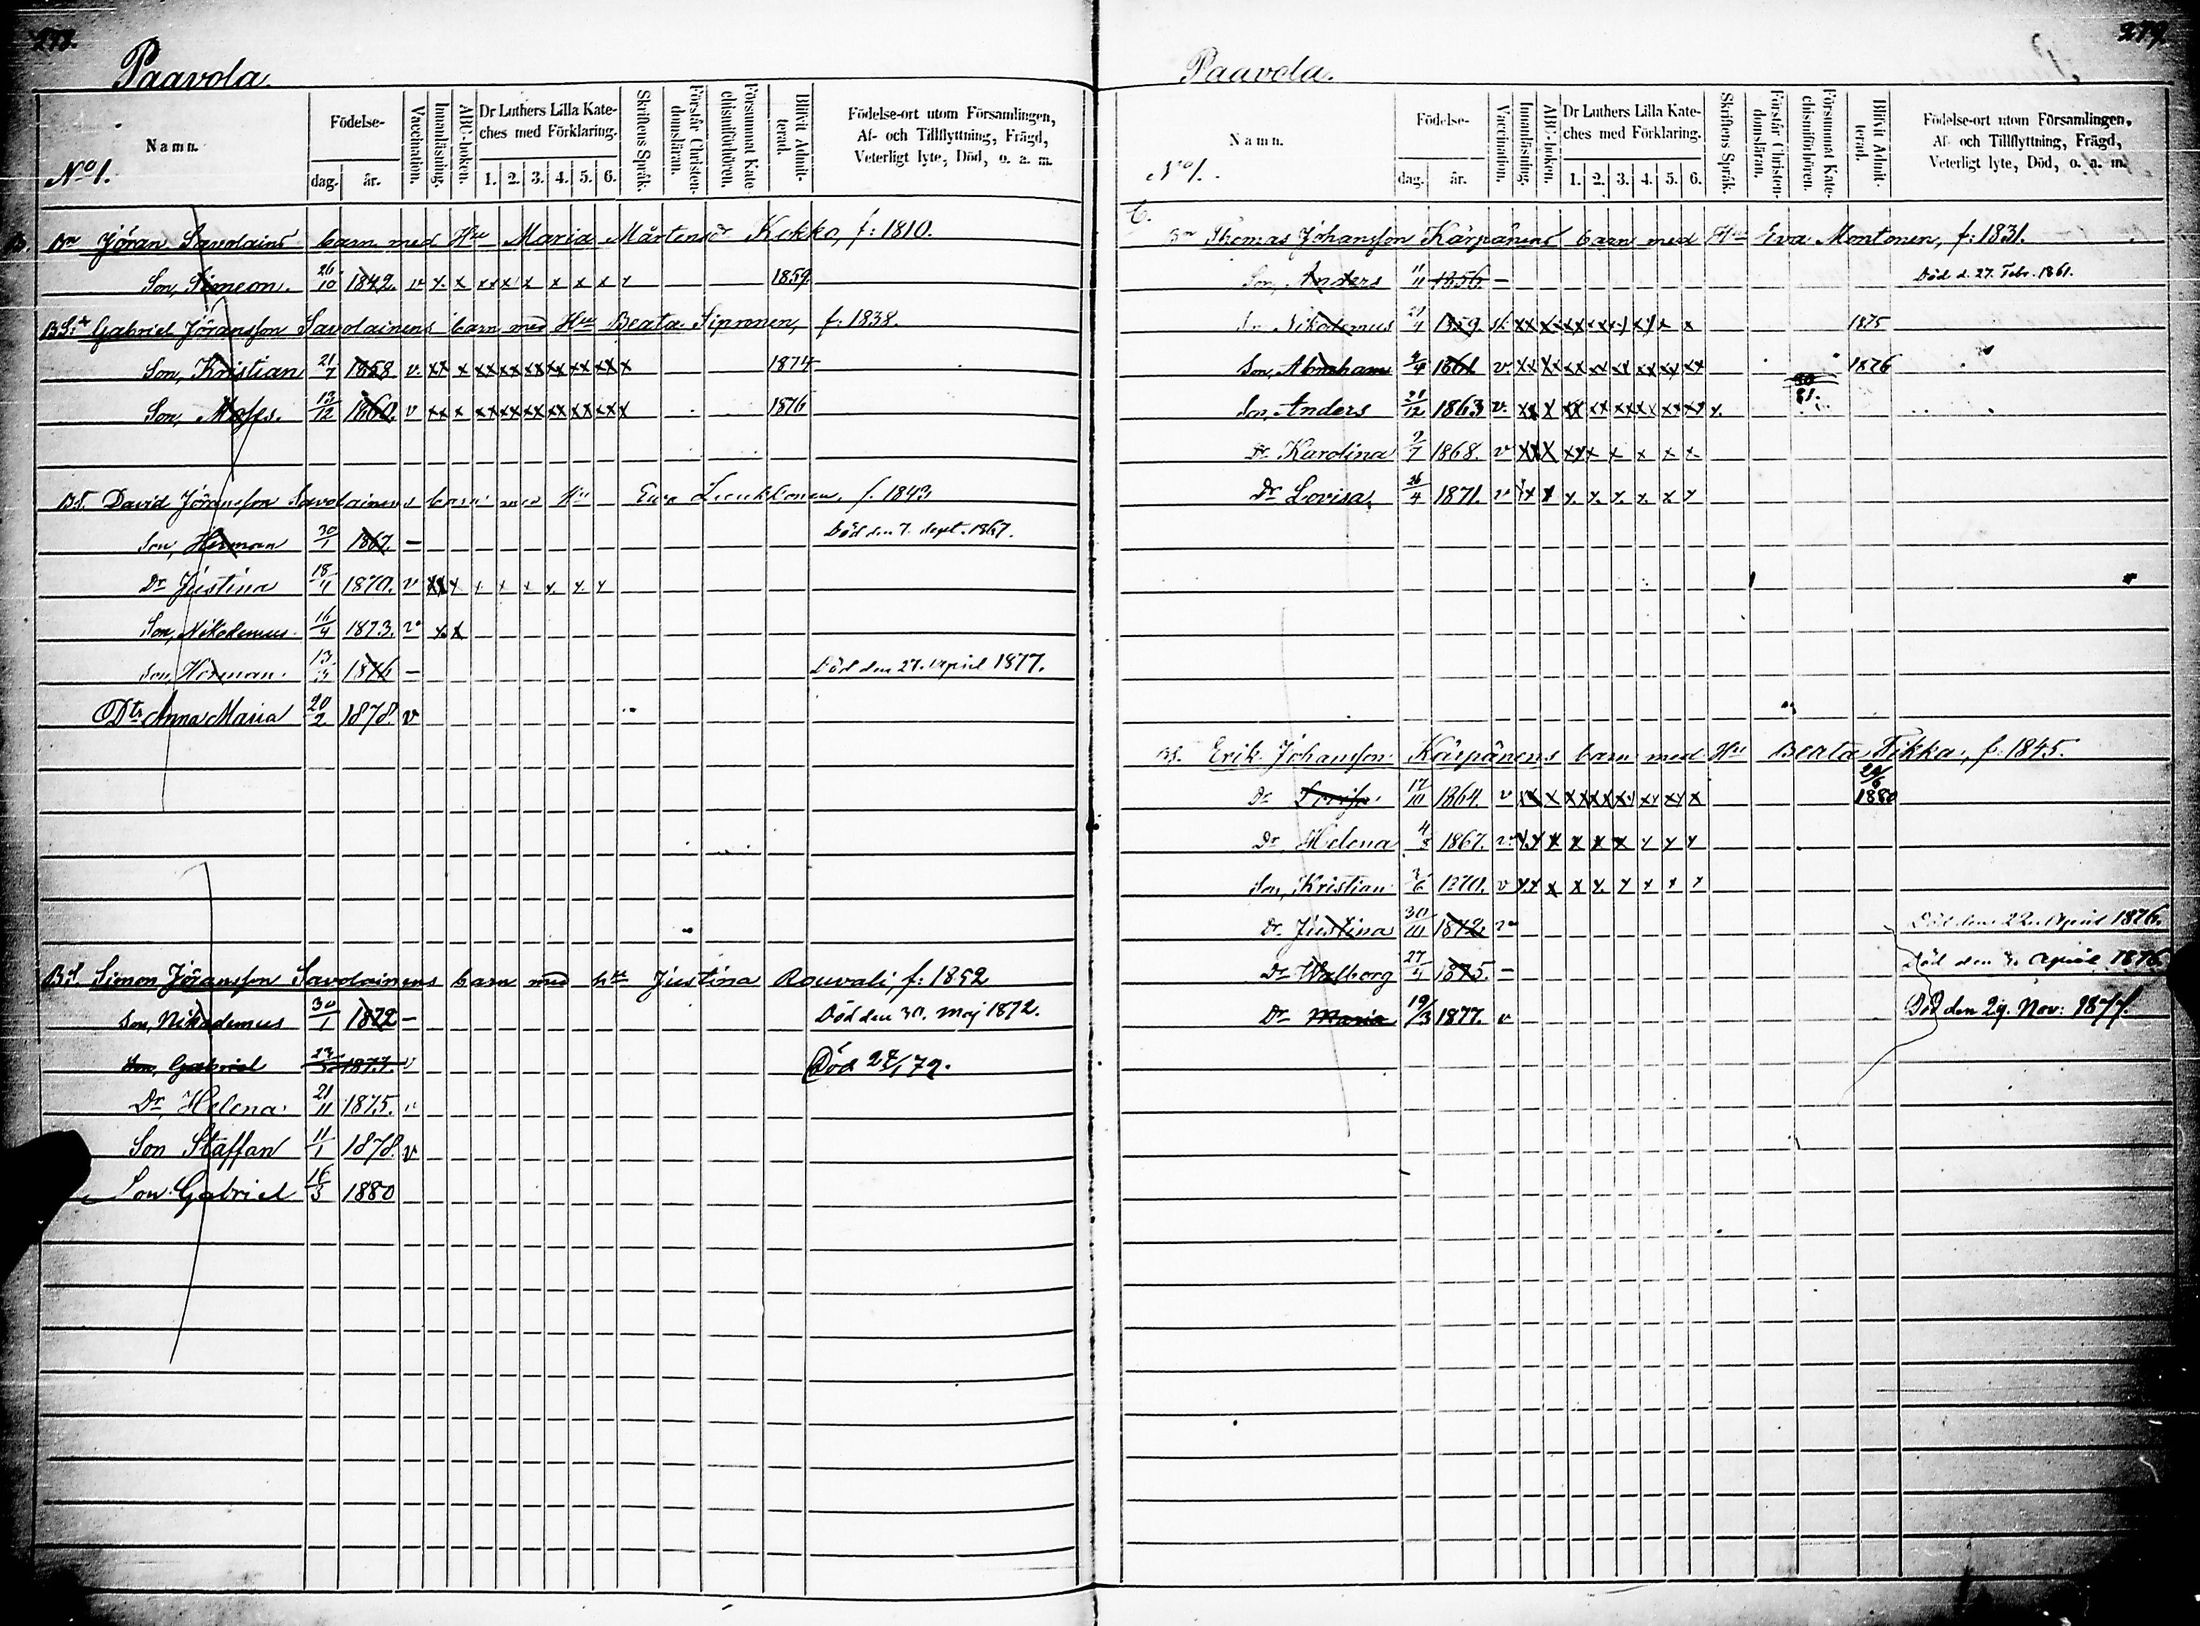 278.
Paavola.
Namn.
No 1.
Födelse-
dag.
år.
Vaccination.
Innanläsning.
ABC-boken.
Dr Luthers Lilla Kate-
ches med Förklaring.
1. 2. 3. 4. 5. 6.
Skriftens Språk.
Förstår Christen-
domsläran.
Försummat Kate-
chismiförhören.
Blifvit Admit-
terad.
Födelse-ort utom Församlingen,
Af- och Tillflyttning, Frägd,
Veterligt lyte, Död, o. a. m.
B. Bn Jöran Savolains barn med Hu Maria Mårtensdr Kokko, f: 1810.
Son, Simeon. 26/10 1842. v x x xx x x x x x 1859
BS. + Gabriel Jöransson Savolainens barn med Hu Beata Sipronen, f. 1838.
Son, Kristian 21/7 1858 v xx x xx xx xx xx xx xx x 1874
Son, Moses. 13/12 1860 v xx x xx xx xx xx xx xx x 1876
BS. David Jöransson Savolainens barn med Hu Eva f. 1843
Son, Herman 30/1 1867. – Död den 7. Sept. 1867.
Dr Justina 18/11 1870. v xx x x x x x x x
Son, Nikodemus 16/4 1873. v x x
Son, Herman. 13/3 1876 – Död den 27. April 1877.
Dtr Anna Maria 20/2 1878. v
BS. Simon Jöransson Savolainens barn med hu Justina Rouvali f: 1852
Son, Nikodemus 30/1 1872 – Död den 30. Maj 1872.
Son, Gabriel 1877. v Död 24/1 79.
Dr, Helena 21/11 1875. v
Son Staffan 11/1 1878. v
Son Gabriel 16/3 1880
279.
Paavola.
Namn.
No 1.
Födelse-
dag.
år.
Vaccination.
Innanläsning.
ABC-boken.
Dr Luthers Lilla Kate-
ches med Förklaring.
1. 2. 3. 4. 5. 6.
Skriftens Språk.
Förstår Christen-
domsläran.
Försummat Kate-
chismiförhören.
Blifvit Admit-
terad.
Födelse-ort utom Församlingen,
Af- och Tillflyttning, Frägd,
Veterligt lyte, Död, o. a. m.
C.
Bn Thomas Johansson Kärpänens barn med Hu Eva Montonen, f: 1831.
Son, Anders 11/11 1856 – Död d. 27. Febr. 1861.
Nikodemus 1859 xx xx xx xx xx x x x 1875
Son, Abraham 1861 v. xx xx xx xx xx xx xx xx 1876
Son, Anders 21/12 1863 v. xx x xx xx xx xx xx xx x. 81.
Dr Karolina 9/7 1868. v xx x xx x x x x x
Dr Lovisa, 26/4 1871. v x x x x x x x x
BS. Erik Johansson Kärpänens barn med Hu Beata Tikka, f: 1845.
Dr Lovisa 17/10 1864. v xx x xx xx xx xx xx x 29/6 1880
Dr, Helena 4/3 1867. v xx x x x x x x x
Son, Kristian 3/6 1870. v xx x x x x x x x
Dr. Justina 30/10 1872. v Död den 22. April 1876.
Dr Walborg 27/4 1875. – Död den 3. April 1876.
Dr Maria 19/3 1877. v Död den 29. Nov: 1877.